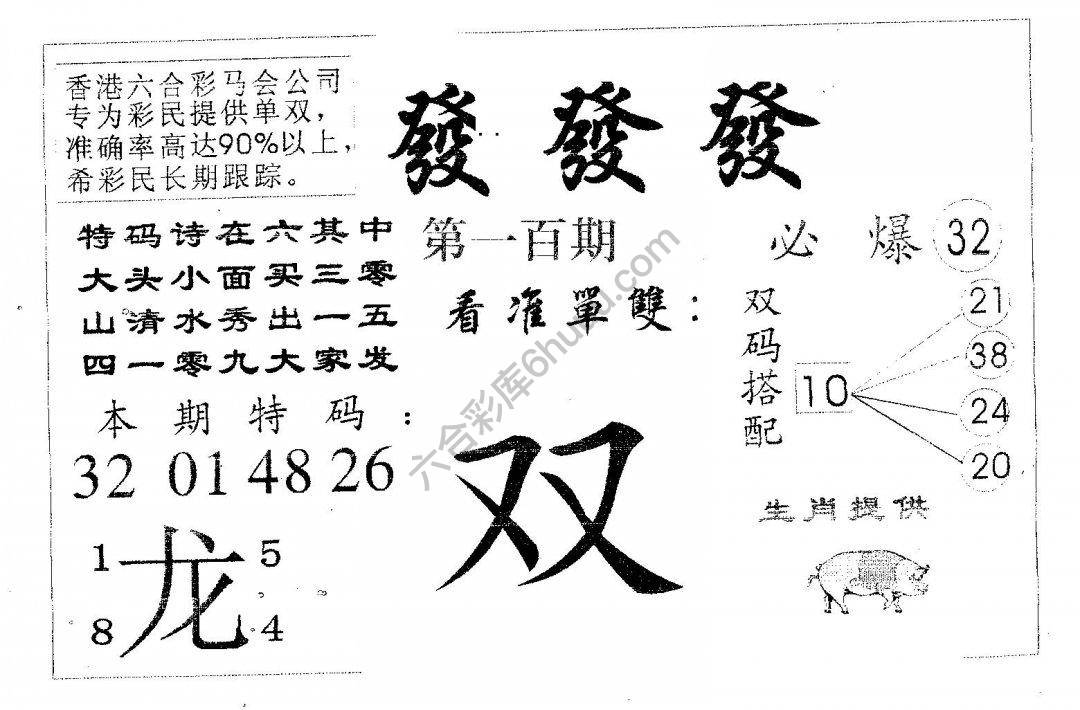 香港六合彩马会公司
专为彩民提供单双,
准确率高达90%以上,
希彩民长期跟踪。
發 發 發
特码诗在六其中
大头小面买三零
山清水秀出一五
四一零九大家发
第一百期
必爆 32
看准單雙:
双码搭配
10
21
38
24
20
本期特码:
32 01 48 26
双
1 5
龙
8 4
生肖提供
六合彩库6huku.com